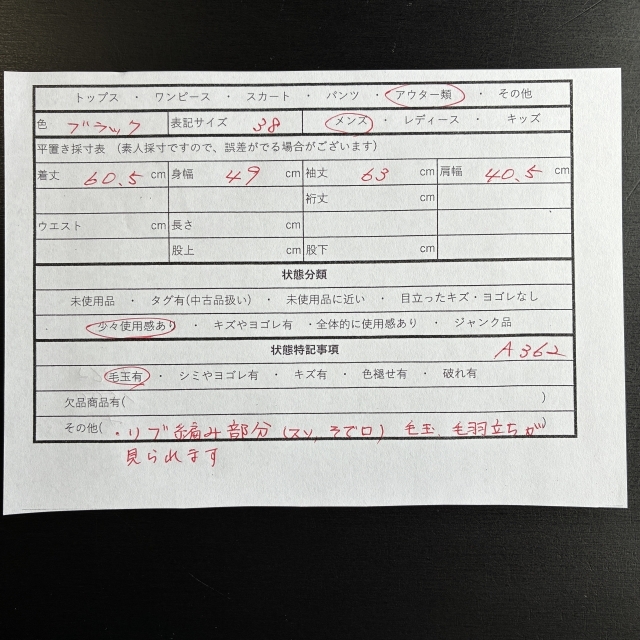 トップス ・ ワンピース ・ スカート ・ パンツ ・ アウター類 ・ その他
色 ブラック 表記サイズ 38 メンズ ・ レディース ・ キッズ
平置き採寸表 (素人採寸ですので、誤差がでる場合がございます)
着丈 60.5 cm 身幅 49 cm 袖丈 63 cm 肩幅 40.5 cm
裄丈 cm
ウエスト cm 長さ cm cm
股上 cm 股下 cm
状態分類
未使用品 ・ タグ有(中古品扱い) ・ 未使用品に近い ・ 目立ったキズ・ヨゴレなし
少々使用感あり ・ キズやヨゴレ有 ・全体的に使用感あり ・ ジャンク品
状態特記事項 A362
毛玉有 ・ シミやヨゴレ有 ・ キズ有 ・ 色褪せ有 ・ 破れ有
欠品商品有( )
その他( ・リブ編み部分(スソ,そで口) 毛玉、毛羽立ちが)
見られます